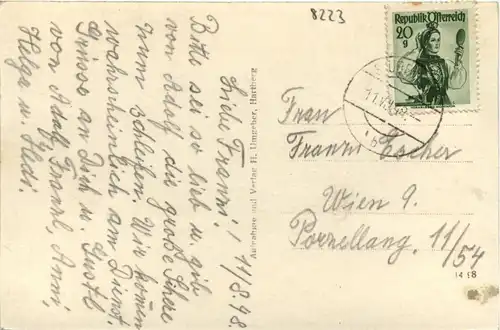 8223
Republik Österreich
20
g
Liebe Franni! 11/8.48.
Bitte sei so lieb u. gib
von Adolf die große Schere
zum Schleifen. Wir kommen
wahrscheinlich am Dienst.
Grüsse an Dich u. Gustl
von Adolf, Franzl, Anni,
Helga u. Hedi.
Aufnahme und Verlag H. Umgeher, Hartberg
Frau
Franni Escher
Wien 9.
Porzellang. 11/54
14 58